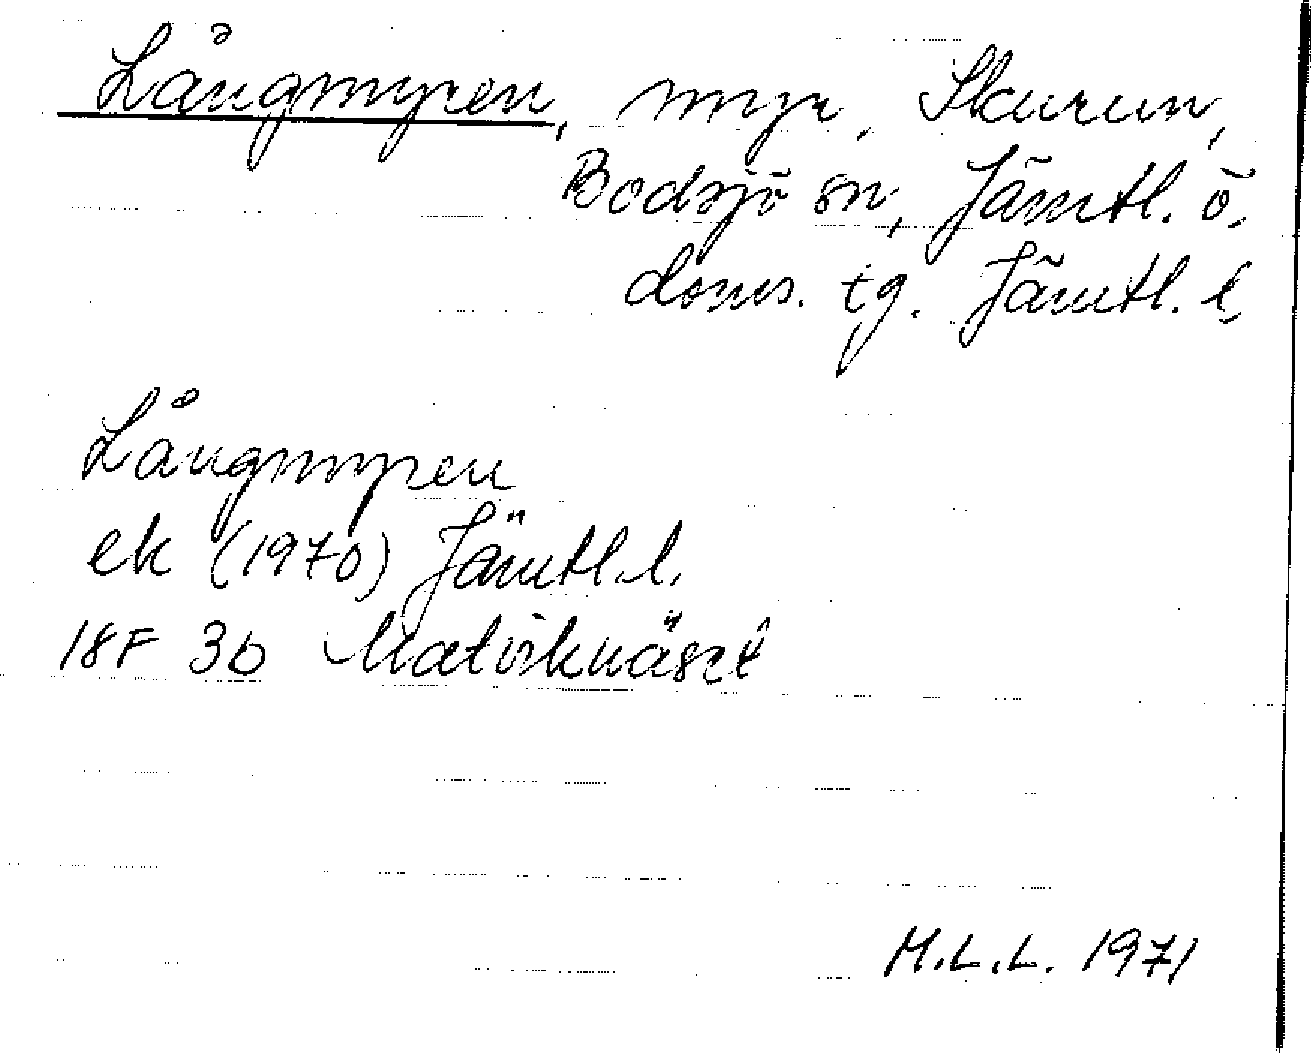 Långmyren, myr, Skurun,
Bodsjö sn, Jämtl. ö.
doms. tg. Jämtl. l.
Långmyren
ek (1970) Jämtl. l.
18F 3b Matviknäset
M.L.L. 1971